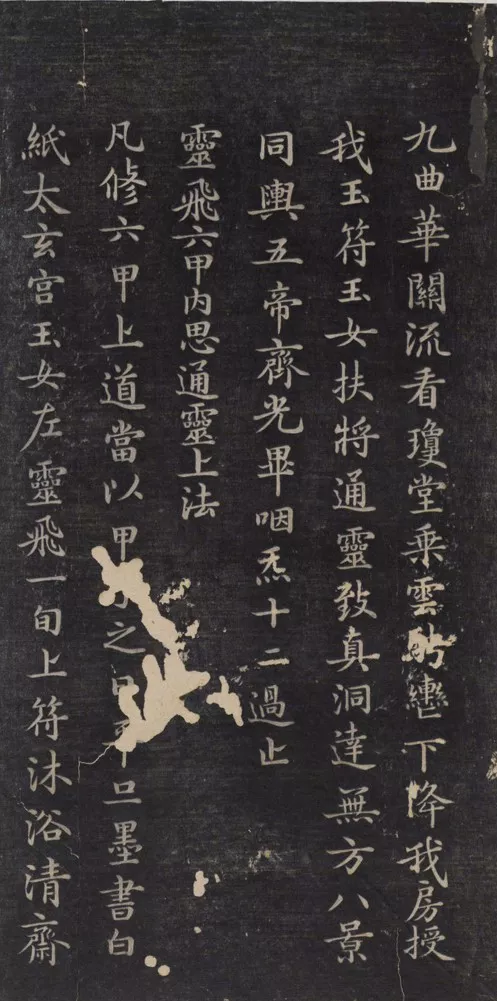 九曲華關流看瓊堂乘雲轡下降我房授
我玉符玉女扶將通靈致真洞達無方八景
同輿五帝齊光畢咽炁十二過止
靈飛六甲內思通靈上法
凡修六甲上道當以甲之日墨書白
紙太玄宮玉女左靈飛一旬上符沐浴清齋